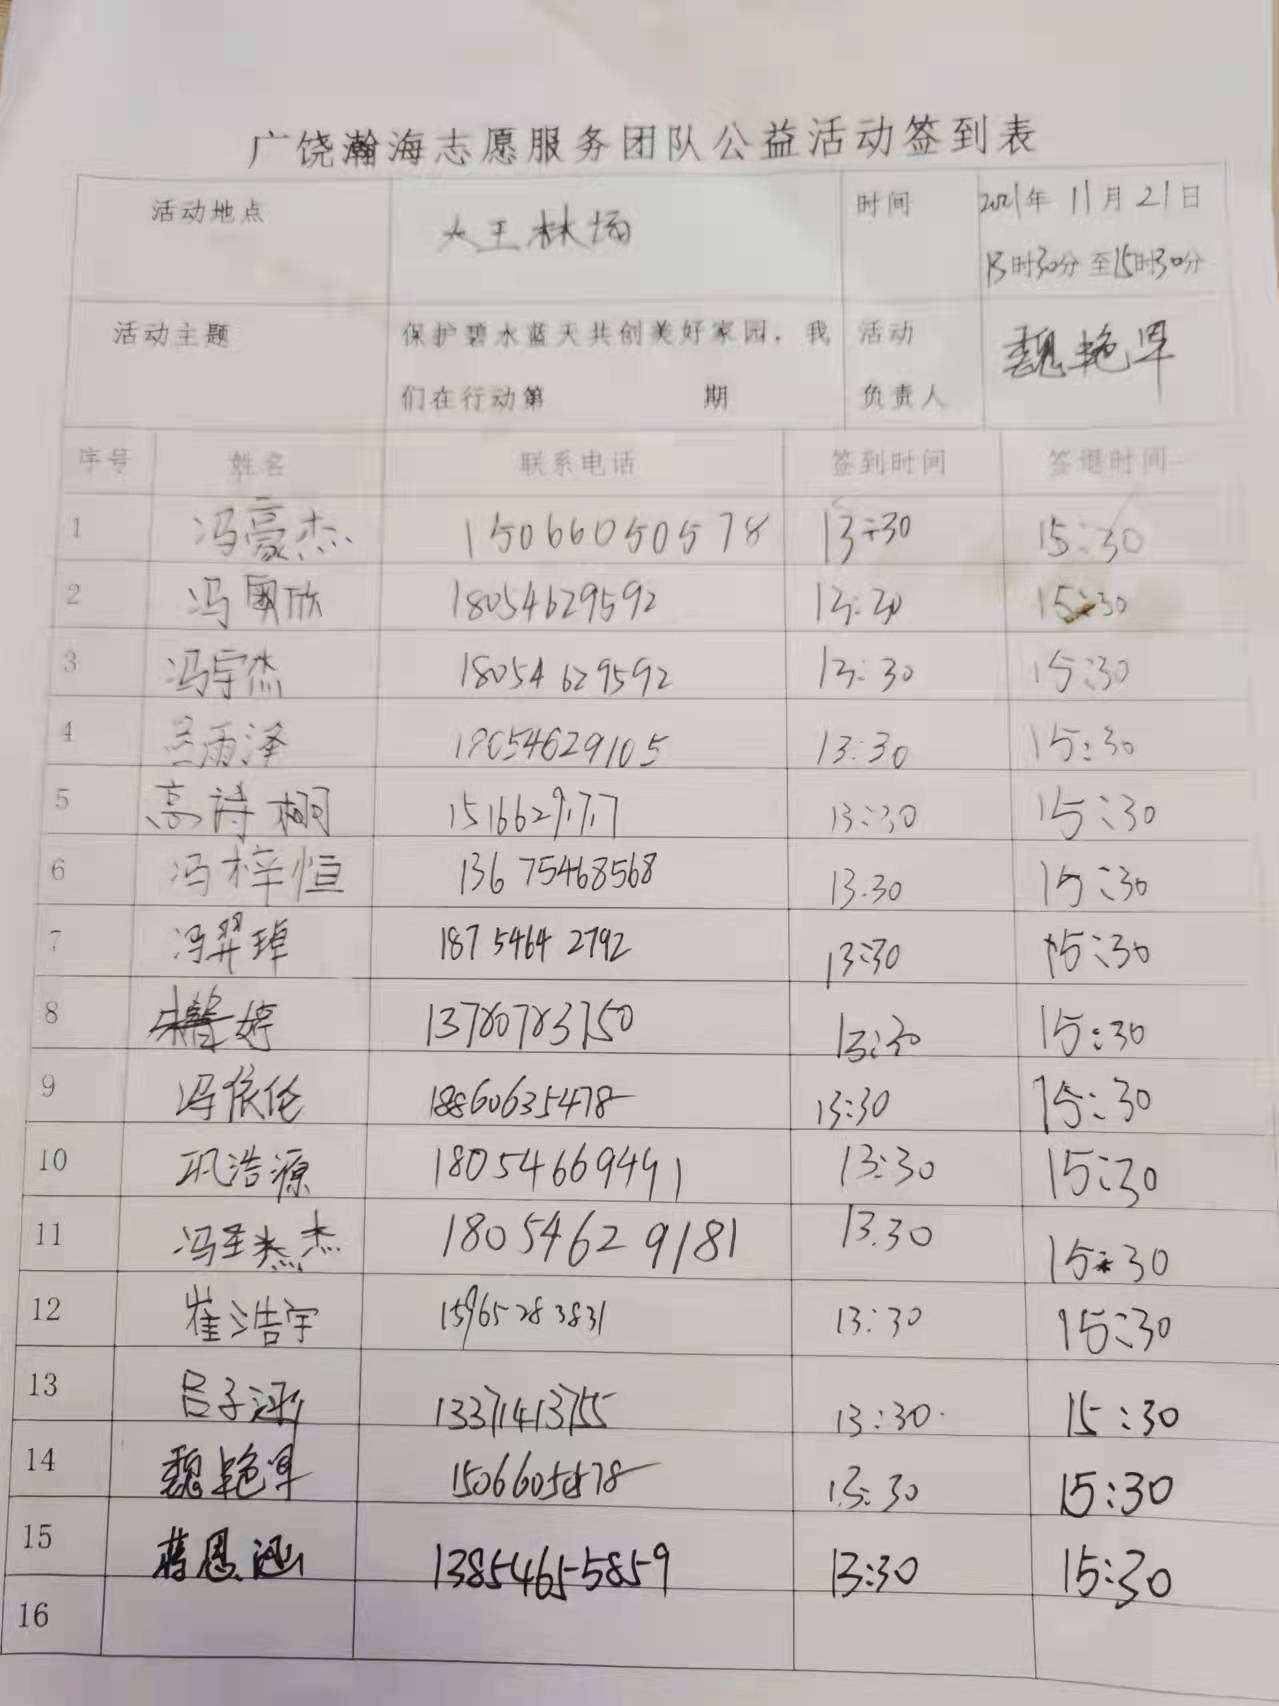 广饶瀚海志愿服务团队公益活动签到表
活动地点 大王林场 时间 2021年 11月 21日
13时30分 至15时30分
活动主题 保护碧水蓝天共创美好家园，我 活动 魏艳早
们在行动第 期 负责人
序号 姓名 联系电话 签到时间 签退时间
1 冯豪杰 15066050578 13:30 15:30
2 冯 欣 18054629592 13:30 15:30
3 冯宇杰 18054629592 13:30 15:30
4 吕雨泽 18054629105 13:30 15:30
5 高诗桐 13:30 15:30
6 冯梓恒 13675468568 13.30 15:30
7 冯羿璋 18754642792 13:30 15:30
8 婷 13780783750 13:30 15:30
9 冯依伦 18860635478 13:30 15:30
10 巩浩源 18054669491 13:30 15:30
11 冯圣杰 18054629181 13.30 15:30
12 崔浩宇 15965283831 13:30 15:30
13 吕子涵 13371413755 13:30 15:30
14 魏艳早 13:30 15:30
15 蒋恩涵 13854655859 13:30 15:30
16